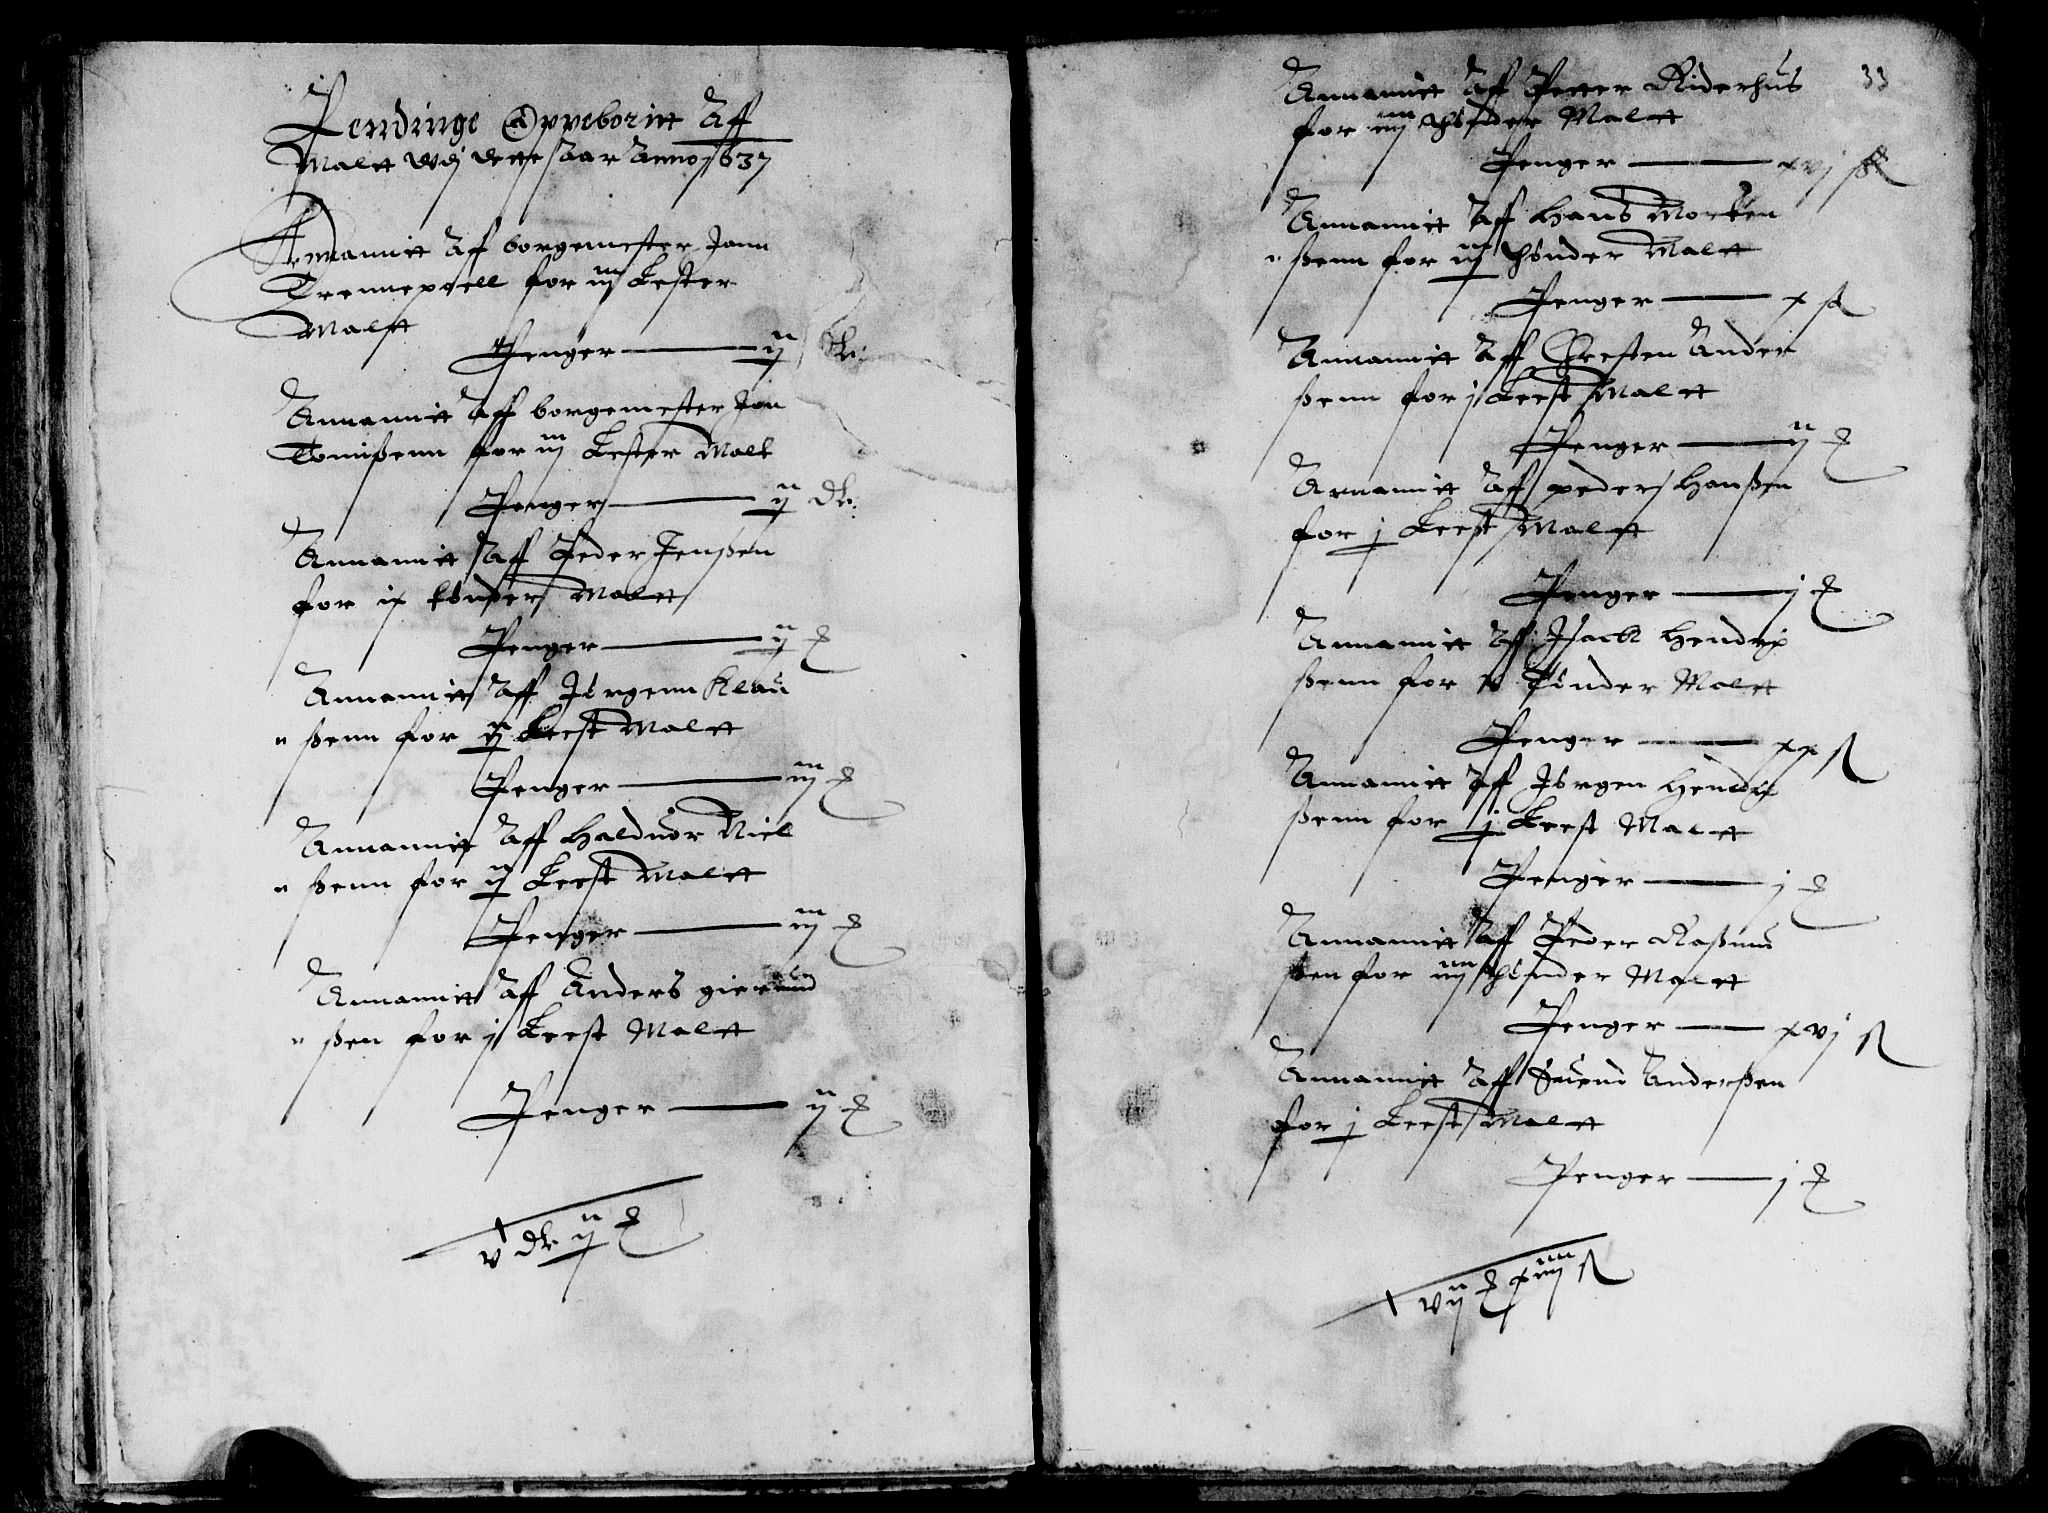 Pendinge Oppeborit Aff
Malt udj dette aar Anno 1637
Annammit Af borgemester Jann
Trennepgell for iij Lester
Malt
Penger — ij dlr:
Annammit Aff borgemester Jan
Tomißenn for iij Lester Malt
Penger — ij dlr:
Annammit Aff Peder Jenßen
for ix tønder Malt
Penger — ij ₰
Annammit Aff Jørgenn Klau
" ßenn for ij Leest Malt
Penger — iij ₰
Annammit Aff Halduor Niel
" ßenn for ij Leest Malt
Penger — iij ₰
Annammit Aff Anders
" ßen for j Leest Malt
Penger — ij ₰
v dlr ij ₰
33
Annammit Aff Petter Riderhus
for iiij thønder Malt
Penger — xvj ß
Annammit Aff Hans Morten
" ßenn for iij thønder Malt
Penger — x ß
Annammit Aff Chresten Ander
ßenn for j Leest Malt
Penger — ij ₰
Annammit Aff peder Hanßen
for j Leest Malt
Penger — j ₰
Annammit Aff Jsack Hendrix
ßenn for v Tønder Malt
Penger — xx ß
Annammit Aff Jørgen Hendrix
ßenn for j Leest Malt
Penger — j ₰
Annammit Aff Peder Raßmu
ßen for iiij thønder Malt
Penger — xvj ß
Annammit Aff Suend Anderßen
for j Leest Malt
Penger — j ₰
vij ₰ xiiij ß